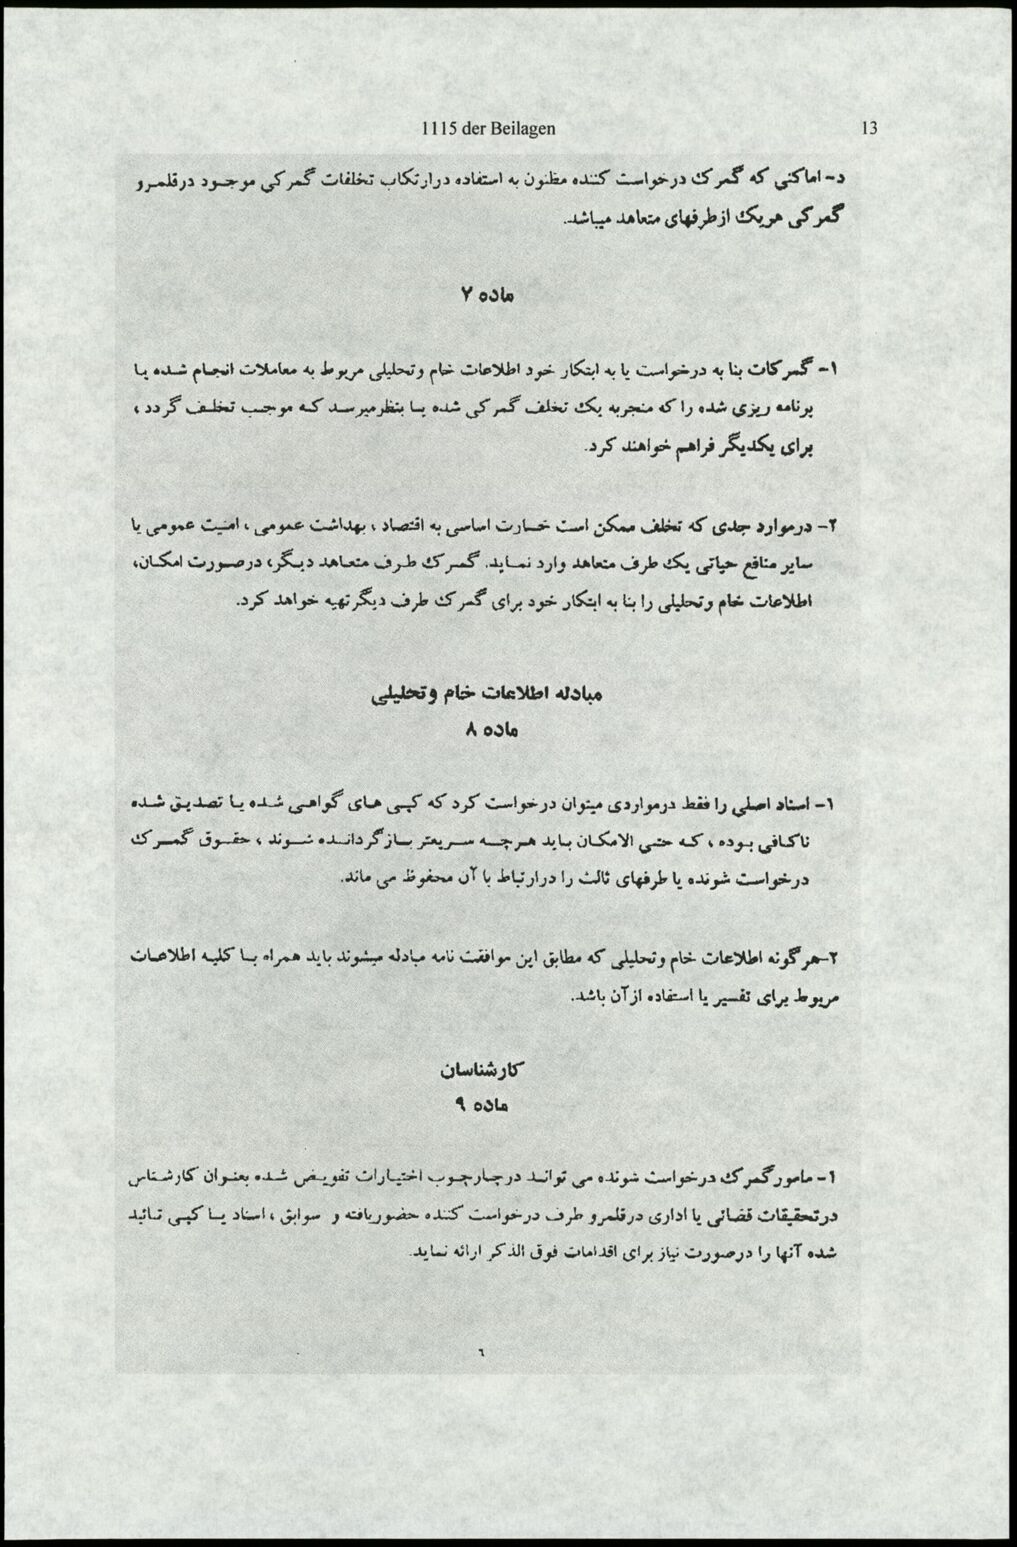 1115 der Beilagen 13
د- اماکنی که گمرک درخواست کننده مظنون به استفاده درارتکاب تخلفات گمرکی موجود درقلمرو
گمرکی هریک ازطرفهای متعاهد میباشد.
ماده ۷
۱- گمرکات بنا به درخواست یا به ابتکار خود اطلاعات خام وتحلیلی مربوط به معاملات انجام شده یا
برنامه ریزی شده را که منجربه یک تخلف گمرکی شده یا بنظرمیرسد که موجب تخلف گردد ،
برای یکدیگر فراهم خواهند کرد.
۲- درموارد جدی که تخلف ممکن است خسارت اساسی به اقتصاد ، بهداشت عمومی ، امنیت عمومی یا
سایر منافع حیاتی یک طرف متعاهد وارد نماید. گمرک طرف متعاهد دیگر، درصورت امکان،
اطلاعات خام وتحلیلی را بنا به ابتکار خود برای گمرک طرف دیگرتهیه خواهد کرد.
مبادله اطلاعات خام وتحلیلی
ماده ۸
۱- اسناد اصلی را فقط درمواردی میتوان درخواست کرد که کپی های گواهی شده یا تصدیق شده
ناکافی بوده ، که حتی الامکان باید هرچه سریعتر بازگردانده شوند ، حقوق گمرک
درخواست شونده یا طرفهای ثالث را درارتباط با آن محفوظ می ماند.
۲-هرگونه اطلاعات خام وتحلیلی که مطابق این موافقت نامه مبادله میشوند باید همراه با کلیه اطلاعات
مربوط برای تفسیر یا استفاده ازآن باشد.
کارشناسان
ماده ۹
۱- مامورگمرک درخواست شونده می تواند درچارچوب اختیارات تفویض شده بعنوان کارشناس
درتحقیقات قضائی یا اداری درقلمرو طرف درخواست کننده حضوریافته و سوابق ، اسناد یا کپی تائید
شده آنها را درصورت نیاز برای اقدامات فوق الذکر ارائه نماید.
٦